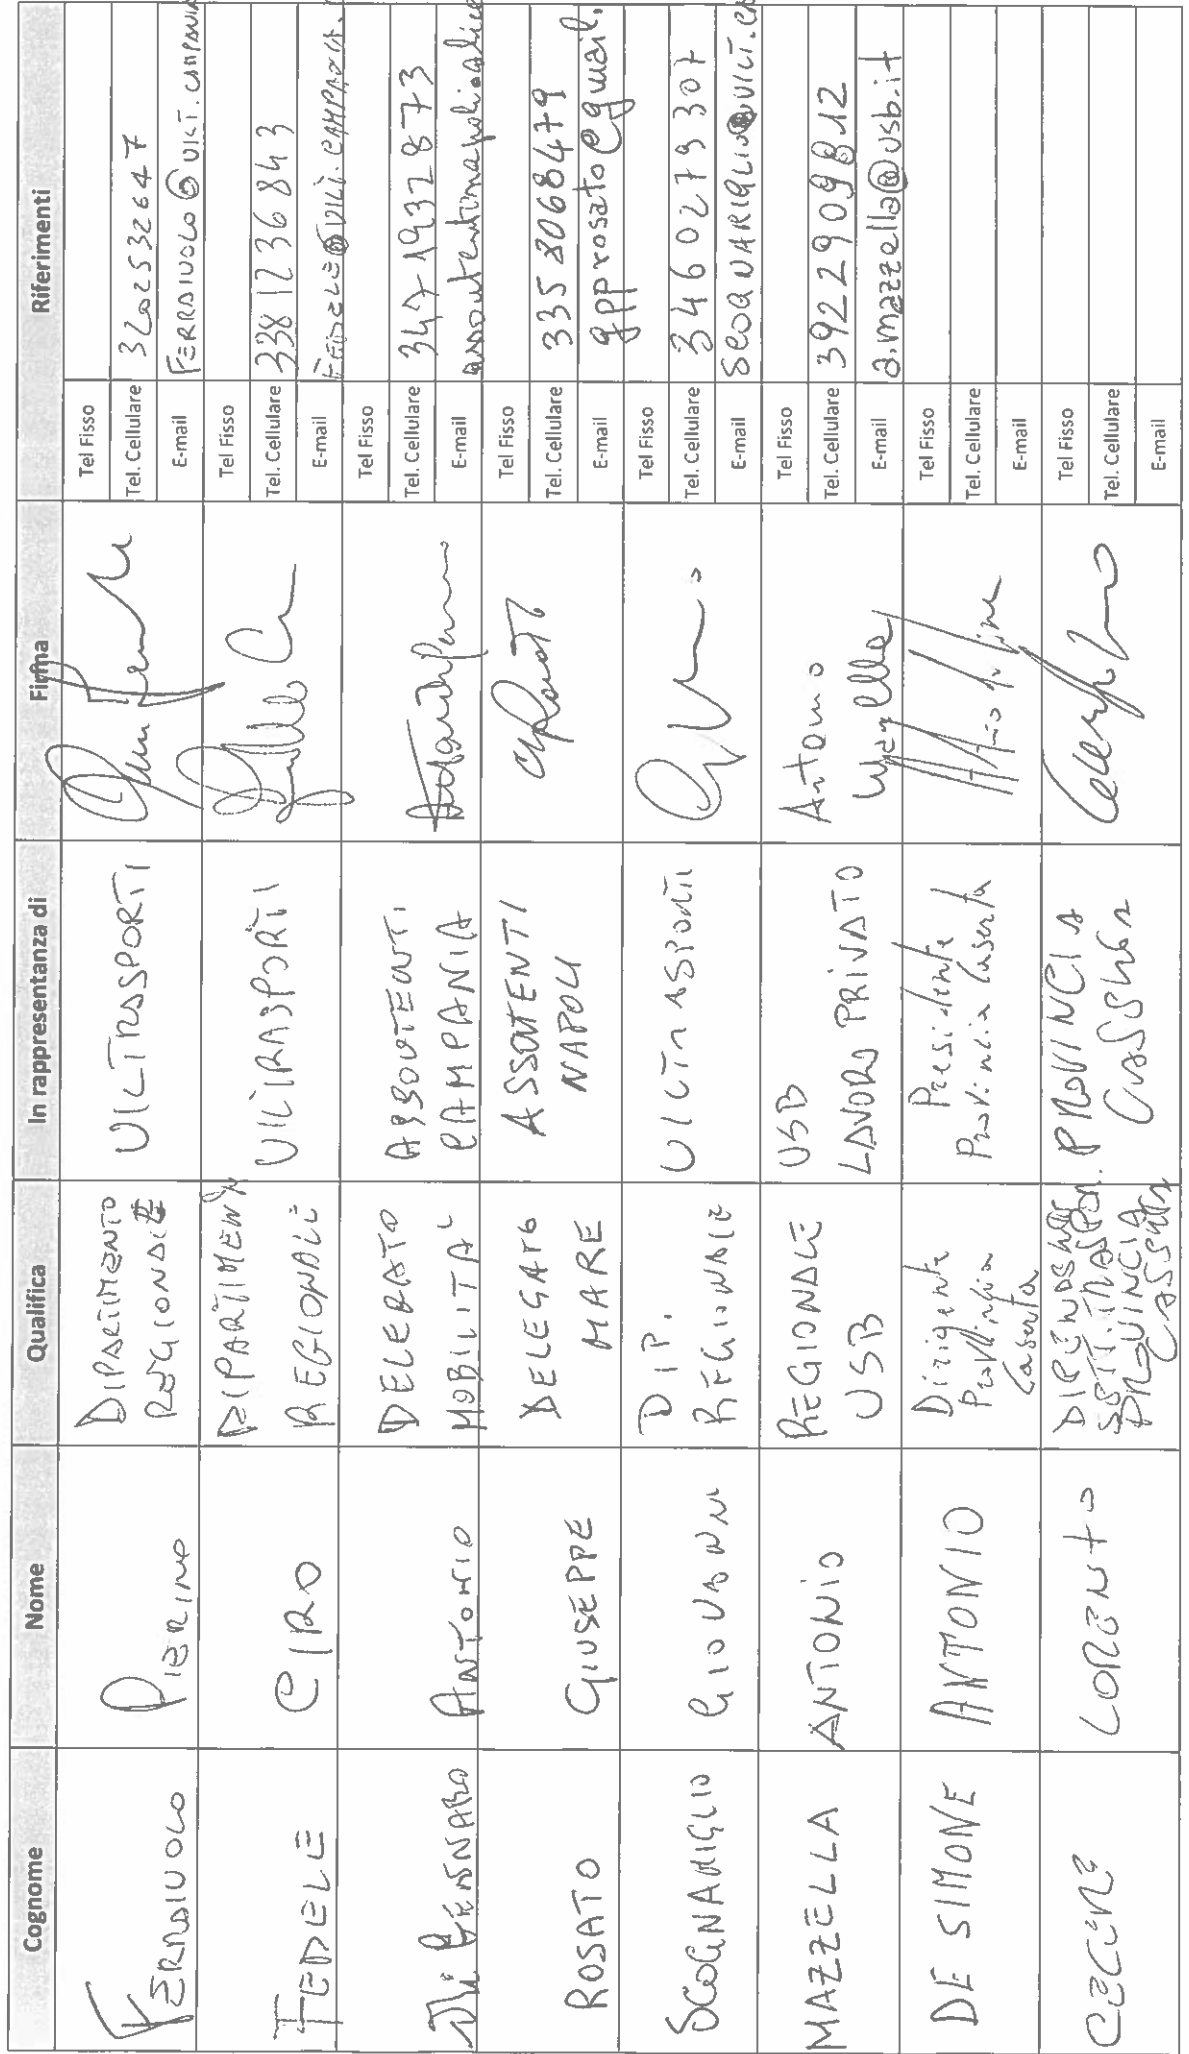 Cognome Nome Qualifica In rappresentanza di Firma Riferimenti
FERRAIUOLO PIERINO DIPARTIMENTO REGIONALE UILTRASPORTI
Tel Fisso
Tel. Cellulare 3202532647
E-mail FERRAIUOLO@UILT.CAMPANIA
FEDELE CIRO DIPARTIMENTO REGIONALE UILTRASPORTI
Tel Fisso
Tel. Cellulare 3381236843
E-mail FEDELE@UILT.CAMPANIA.
Di GENNARO ANTONIO DELEGATO MOBILITA' ASSOUTENTI CAMPANIA
Tel Fisso
Tel. Cellulare 3471932873
E-mail assoutentinapoli@alice
ROSATO GIUSEPPE DELEGATO MARE ASSOUTENTI NAPOLI
Tel Fisso
Tel. Cellulare 3358068479
E-mail gpprosato@gmail.
SCOGNAMIGLIO GIOVANNI DIP. REGIONALE UILTRASPORTI
Tel Fisso
Tel. Cellulare 3460279307
E-mail
MAZZELLA ANTONIO REGIONALE USB USB LAVORO PRIVATO Antonio Mazzella
Tel Fisso
Tel. Cellulare 3922909812
E-mail a.mazzella@usb.it
DE SIMONE ANTONIO Dirigente Provincia Caserta Presidente Provincia Caserta
Tel Fisso
Tel. Cellulare
E-mail
CECERE LORENZO PROVINCIA CASERTA
Tel Fisso
Tel. Cellulare
E-mail